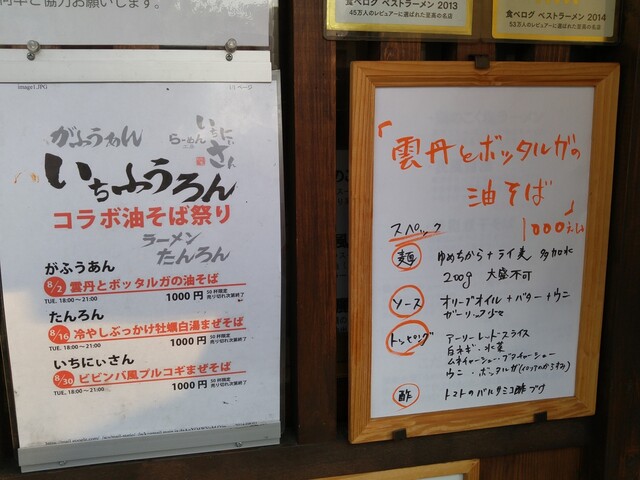 ご協力お願いします。
食べログ ベストラーメン 2013
45万人のレビュアーに選ばれた至高の名店
食べログ ベストラーメン 2014
image1.JPG
がふうあん
らーめん
いちにぃさん
いちふうろん
コラボ油そば祭り
ラーメン
たんろん
がふうあん
8/2 雲丹とボッタルガの油そば
TUE. 18:00~21:00
1000円 50杯限定
売り切れ次第終了
たんろん
8/16 冷やしぶっかけ牡蠣白湯まぜそば
TUE. 18:00~21:00
1000円 50杯限定
売り切れ次第終了
いちにぃさん
8/30 ビビンバ風プルコギまぜそば
TUE. 18:00~21:00
1000円 50杯限定
売り切れ次第終了
「雲丹とボッタルガの
油そば」
1000えん
スペック
麺 ゆめちから+ライ麦 多加水
200g 大盛不可
ソース オリーブオイル+バター+ウニ
トッピング アーリーレッドスライス
白ネギ・水菜
ムネチャーシュー・
ウニ・ボッタルガ(
酢 トマトのバルサミコ酢